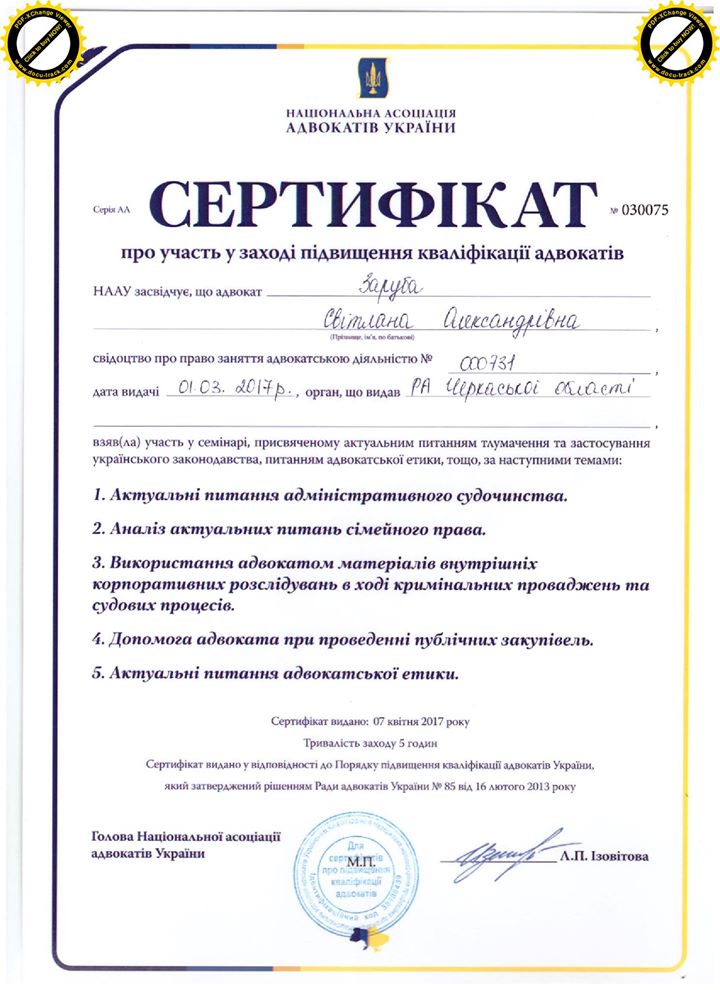 PDF-XChange Viewer
Click to buy NOW!
www.docu-track.com
PDF-XChange Viewer
Click to buy NOW!
www.docu-track.com
НАЦІОНАЛЬНА АСОЦІАЦІЯ
АДВОКАТІВ УКРАЇНИ
Серія АА СЕРТИФІКАТ № 030075
про участь у заході підвищення кваліфікації адвокатів
НААУ засвідчує, що адвокат Заруба
Світлана Олександрівна,
(Прізвище, ім'я, по батькові)
свідоцтво про право заняття адвокатською діяльністю № 000731,
дата видачі 01.03.2017р., орган, що видав РА Черкаської області
,
взяв(ла) участь у семінарі, присвяченому актуальним питанням тлумачення та застосування
українського законодавства, питанням адвокатської етики, тощо, за наступними темами:
1. Актуальні питання адміністративного судочинства.
2. Аналіз актуальних питань сімейного права.
3. Використання адвокатом матеріалів внутрішніх
корпоративних розслідувань в ході кримінальних проваджень та
судових процесів.
4. Допомога адвоката при проведенні публічних закупівель.
5. Актуальні питання адвокатської етики.
Сертифікат видано: 07 квітня 2017 року
Тривалість заходу 5 годин
Сертифікат видано у відповідності до Порядку підвищення кваліфікації адвокатів України,
який затверджений рішенням Ради адвокатів України № 85 від 16 лютого 2013 року
Голова Національної асоціації
адвокатів України
Для
сертифікатів
про підвищення
кваліфікації
адвокатів
М.П.
Ідентифікаційний код
Л.П. Ізовітова